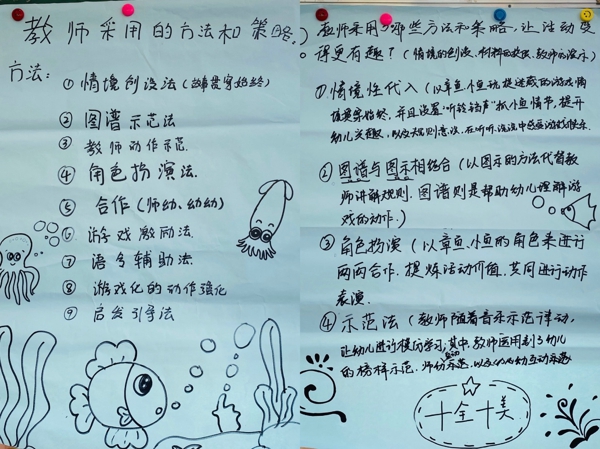 教师采用的方法和策略.
方法:
① 情境创设法(故事贯穿始终)
② 图谱示范法
③ 教师动作示范.
④ 角色扮演法.
⑤ 合作(师幼、幼幼)
⑥ 游戏激励法.
⑦ 语令辅助法.
⑧ 游戏化的动作强化
⑨ 启发引导法
教师采用哪些方法和策略,让活动变
得更有趣?(情境的创设、材料的提供、教师的演示)
① 情境性代入(以章鱼、小鱼玩捉迷藏的游戏情
境贯穿始终,并且设置"听铃铛声"抓小鱼情节,提升
幼儿兴趣,以及规则意识,在听听、说说中感受游戏快乐.
② 图谱与图示相结合(以图示的方法代替教
师讲解规则.图谱则是帮助幼儿理解游
戏的动作.)
③ 角色扮演(以章鱼、小鱼的角色来进行
两两合作.提炼活动价值,共同进行动作
表演.
④ 示范法(教师随着音乐示范律动,
让幼儿进行模仿学习,其中,教师运用到了幼儿
的榜样示范、师幼互动示范,以及幼幼互动示范
十全十美